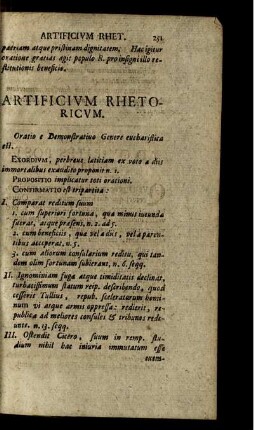 ARTIFICIVM RHET. 251
patriam atque pristinam dignitatem; Hac igitur
oratione gratias agit populo R. pro insigni illo re-
stitutionis beneficio.
ARTIFICIVM RHETO-
RICVM.
Oratio e Demonstrativo Genere eucharistica
est.
EXORDIUM, perbreve, lætitiam ex voto a diis
immortalibus exaudito proponit n. 1.
PROPOSITIO implicatur toti orationi.
CONFIRMATIO est tripartita:
I. Comparat reditum suum
1. cum superiori fortuna, qua minus iucunda
fuerat, atque præsens, n. 2. ad 5.
2. cum beneficiis, quæ vel a diis, vel a paren-
tibus acceperat, n. 5.
3. cum aliorum consularium reditu, qui tan-
dem olim fortunam subierant, n. 6. seqq.
II. Ignominiam fugæ atque timiditatis declinat,
turbatissimum statum reip. describendo, quod
cesserit Tullius, repub. sceleratorum homi-
num vi atque armis oppressa: redierit, re-
publica ad meliores consules & tribunos rede-
unte. n. 13. seqq.
III. Ostendit Cicero, suum in remp. stu-
dium nihil hac iniuria immutatum esse
exem-